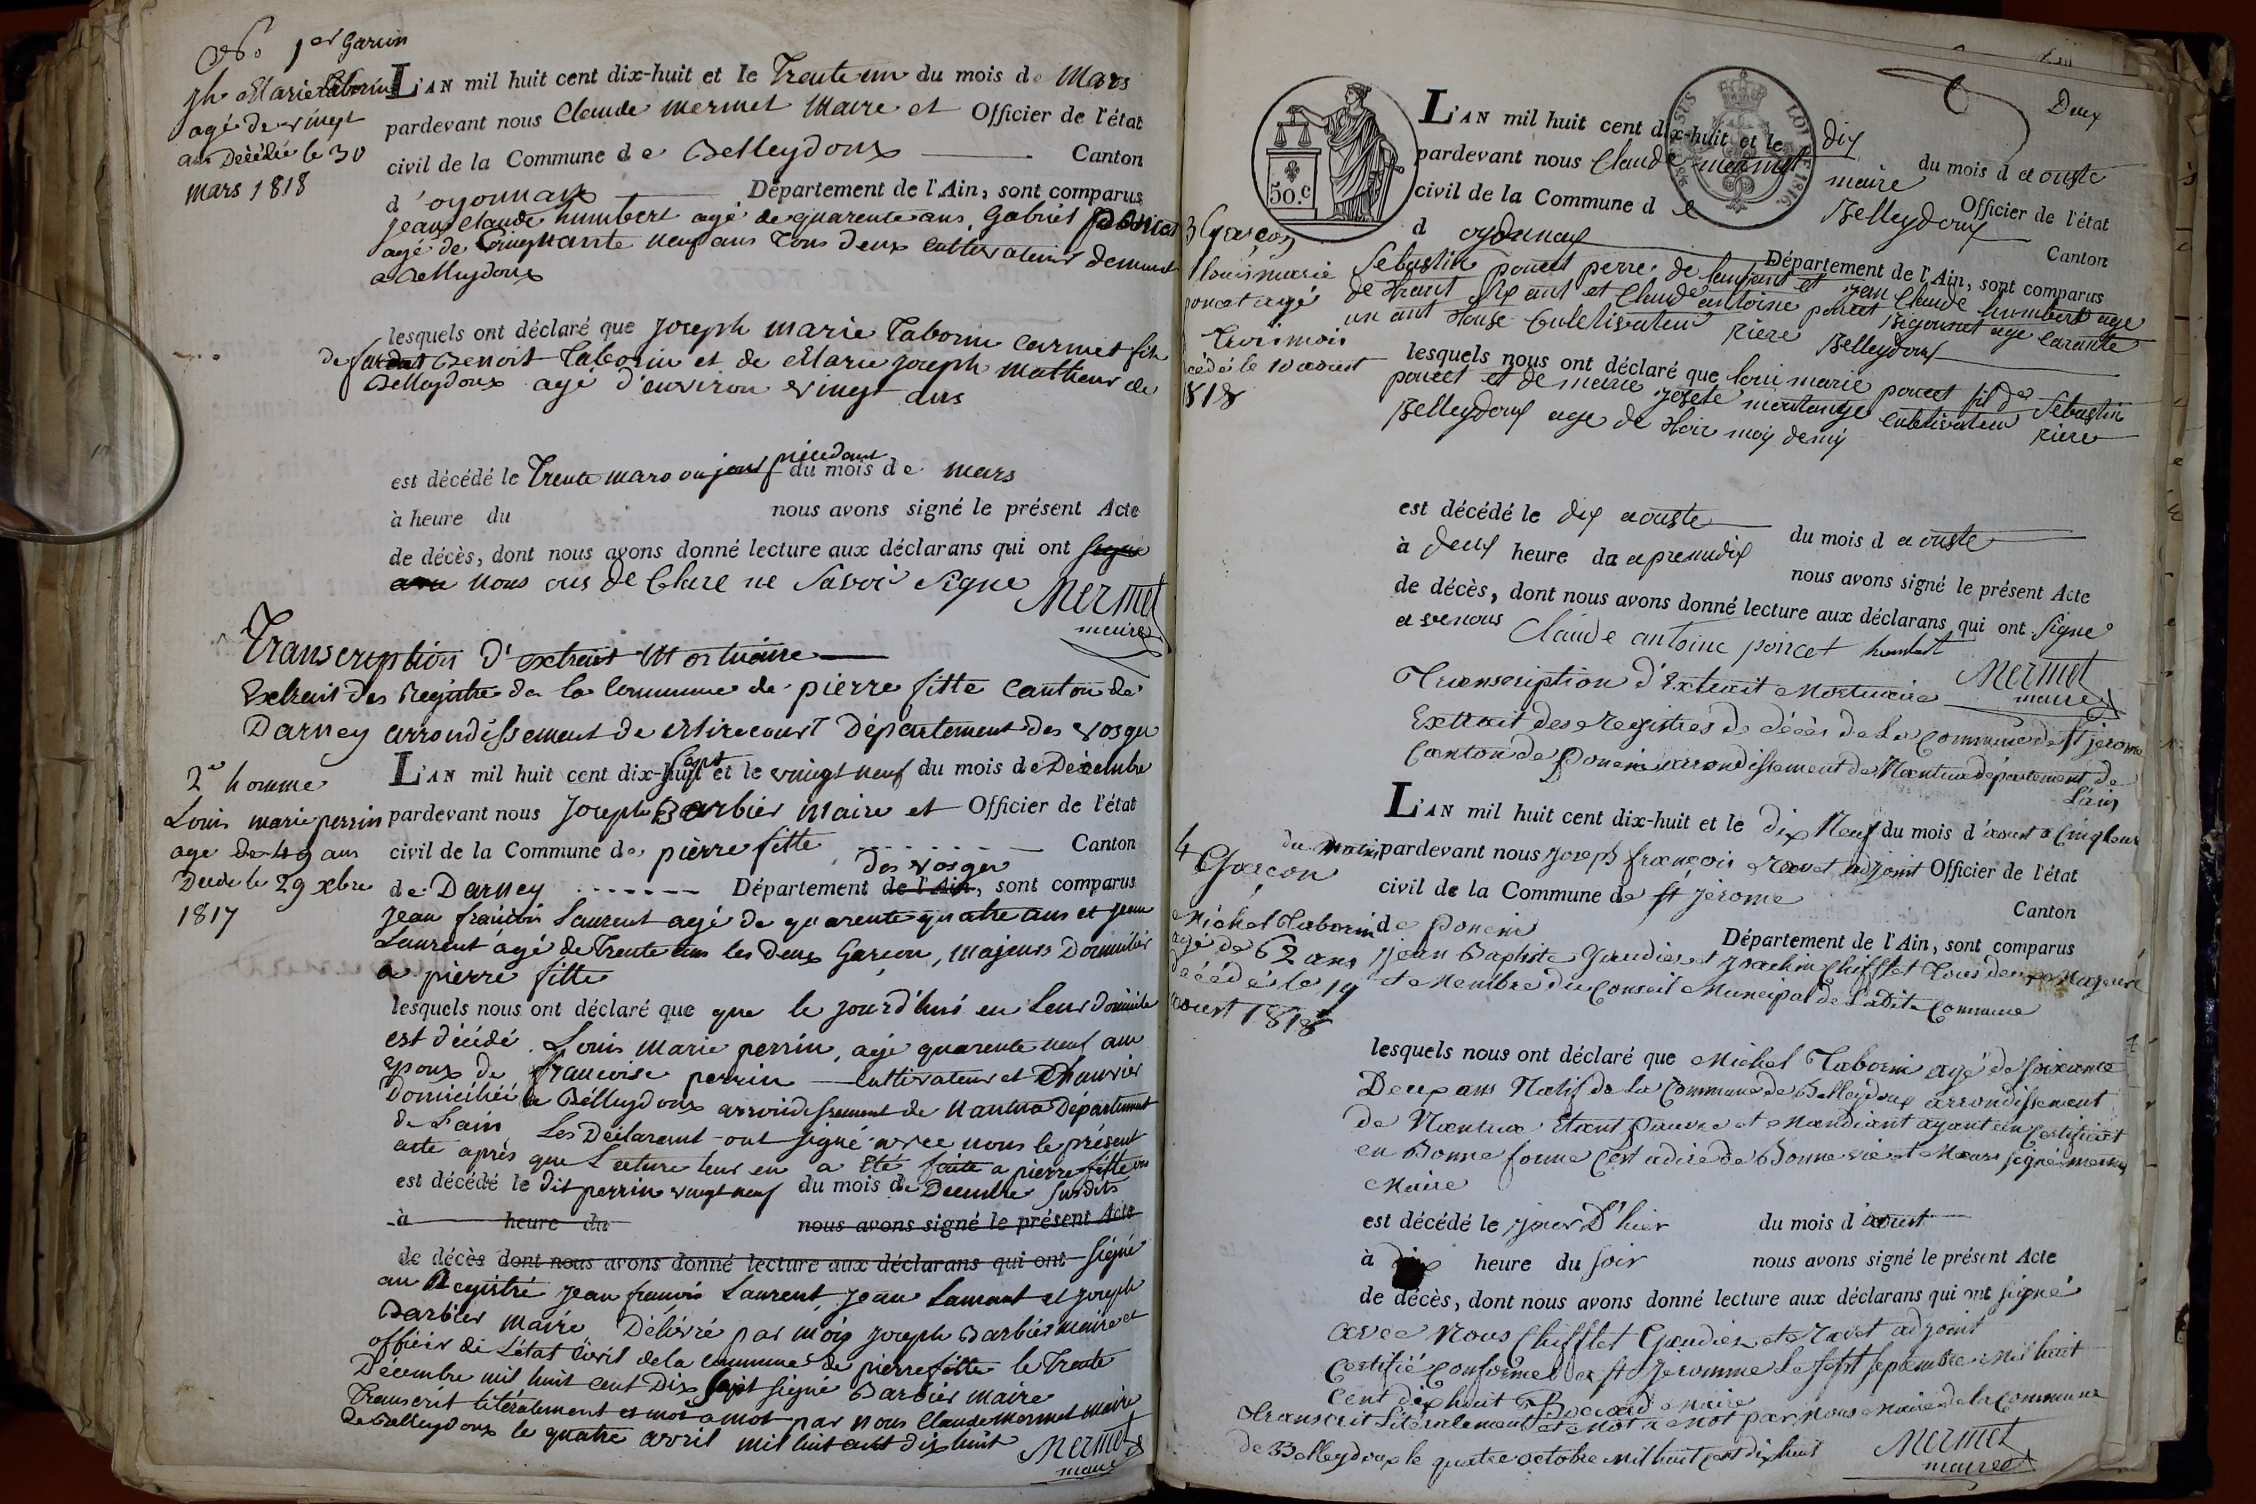 No 1er Garçon
jh Marie Taborin
agé de vingt
ans Décédé le 30
mars 1818
L'AN mil huit cent dix-huit et le Trente un du mois de Mars
pardevant nous Claude Mermet Maire et Officier de l'état
civil de la Commune de Belleydoux Canton
d'oyonnax Département de l'Ain, sont comparus
jean Claude humbert agé de quarente ans Gabriel
agé de Cinquante neuf ans tous deux cultivateurs demeurt
a Belleydoux
lesquels ont déclaré que joseph marie Taborin Carmet fils
de Benoit Taborin et de Marie joseph Matheur de
Belleydoux agé d'environ vingt ans
est décédé le Trente mars ou jour précédant du mois de mars
à heure du nous avons signé le présent Acte
de décès, dont nous avons donné lecture aux déclarans qui ont signé
avec nous ons de Clare ne Savoir Signe
Mermet
maire
Transcription d'extrait Mortuaire
Extrait des Registre de la Commune de pierre fitte Canton de
Darney arrondissement de Mirecourt Département des Vosges
2e homme
Louis marie perrin
age de 49 ans
Décédé le 29 xbre
1817
L'AN mil huit cent dix-huit sept et le vingt neuf du mois de Décembre
pardevant nous Joseph Barbier Maire et Officier de l'état
civil de la Commune de pierre fitte Canton
des Vosges
de Darney Département de l'Ain, sont comparus
jean françois Laurent agé de quarente quatre ans et jean
Laurent agé de Trente ans les deux Garçon, Majeurs Domiciliés
a pierre fitte
lesquels nous ont déclaré que que le jourd'hui en Leur Domicile
est décédé Louis Marie perrin, agé quarente neuf ans
Epoux de françoise perrin cultivateur et Chanvrier
Domicilié a Belleydoux arrondissement de Nantua Département
de L'ain Les Déclarant ont signé avec nous le présent
acte après que Lecture leur en a été faite a pierre fitte
est décédé le dit perrin vingt neuf du mois de Décembre susdits
à heure du nous avons signé le présent Acte
de décès dont nous avons donné lecture aux déclarans qui ont Signé
au Registre jean françois Laurent, jean Laurant et joseph
Barbier Maire Délivré par moi joseph Barbier maire et
officier de L'état Civil de la commune de pierrefitte le Trente
Décembre mil huit cent Dix Sept signé Barbier Maire
Transcrit litéralement et mot a mot par nous Claude Mermet maire
de Belleydoux le quatre avril mil huit cent dix huit
Mermet
maire
Deux
50.c
LOI DE 1816.
L'AN mil huit cent dix-huit et le dix du mois d aouste
pardevant nous Claude mermet maire Officier de l'état
civil de la Commune d e Belleydoux Canton
d oyonnax Département de l'Ain, sont comparus
3 Garçon
louis marie
poncet agé
Trois mois
cédé le 10 aoust
1818
Sebastin poncet perre de lanfant et jean Claude humbert age
de trant six ant et Claude antoine poncet Bigounet age Carante
un ant touse Cultivateur riere Belleydoux
lesquels nous ont déclaré que loui marie poncet fil de Sebastin
poncet et de marie josete montange Cultivateur riere
Belleydoux age de troix moy demy
est décédé le dix aouste du mois d aouste
à deux heure da apremidix nous avons signé le présent Acte
de décès, dont nous avons donné lecture aux déclarans qui ont signe
avenous Claude antoine poncet humbert
Mermet
maire
Transcription d'Extrait Mortuaire
Extrait des Registres de décès de La Commune de St jerome
Canton de Poncin arrondissement de Nantua département de
L'ain
L'AN mil huit cent dix-huit et le dix Neuf du mois d'aoust a Cinq heur
du matin pardevant nous joseph françois Ravet adjoint Officier de l'état
civil de la Commune de St jérome Canton
de Poncin Département de l'Ain, sont comparus
4 Garçon
Michel Taborin
agé de 62 ans
décédé le 19
aoust 1818
jean Baptiste Gaudier et joachin Chifflet Tous deux Majeurs
et Membre du Conseil Municipal de Ladite Commune
lesquels nous ont déclaré que Michel Taborin agé de soixante
Deux ans Natif de La Commune de Belleydoux arrondissement
de Nantua Etant pauvre et Mandiant ayant un Certificat
en Bonne forme C'est a dire de Bonne vie et Mœurs signé mermet
Maire
est décédé le jour D'hier du mois d'aoust
à dix heure du soir nous avons signé le présent Acte
de décès, dont nous avons donné lecture aux déclarans qui ont signé
avec Nous Chifflet Gaudier et Ravet adjoint
Certifié Conforme a St jeromme Le sept septembre Mil huit
Cent dix huit Bocard Maire
Transcrit Litéralement et Mot a Mot par Nous Maire de la Commune
de Belleydoux le quatre octobre Mil huit cent dix huit
Mermet
maire